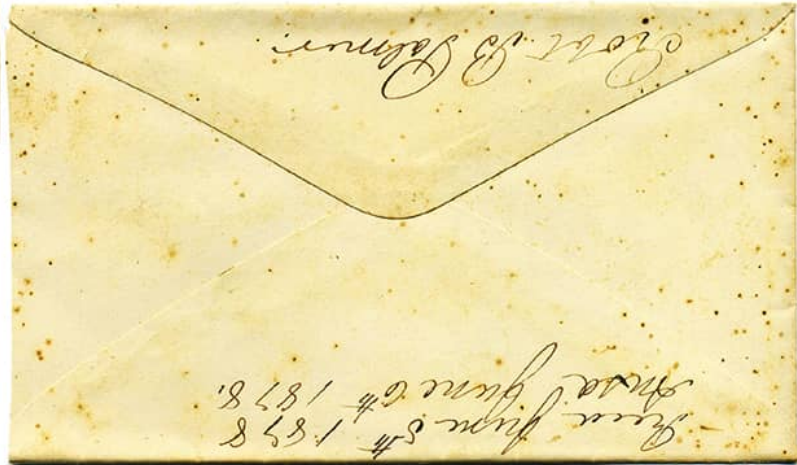 Recd June 5th 1878
Ansd June 6th 1878.
Robt B Palmer.